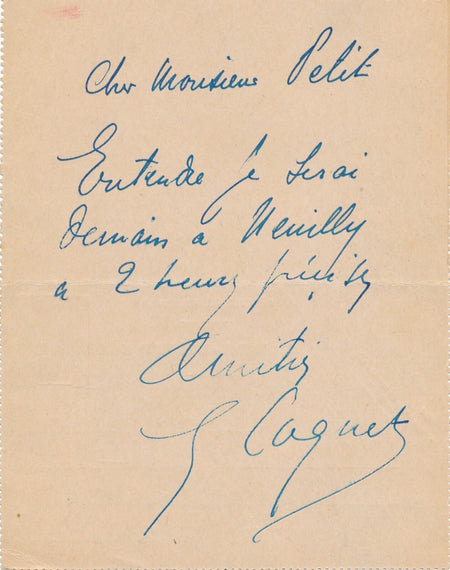 Cher Monsieur Petit
Entendu je serai
demain a Neuilly
a 2 heures précises
Amitiés
Coquet